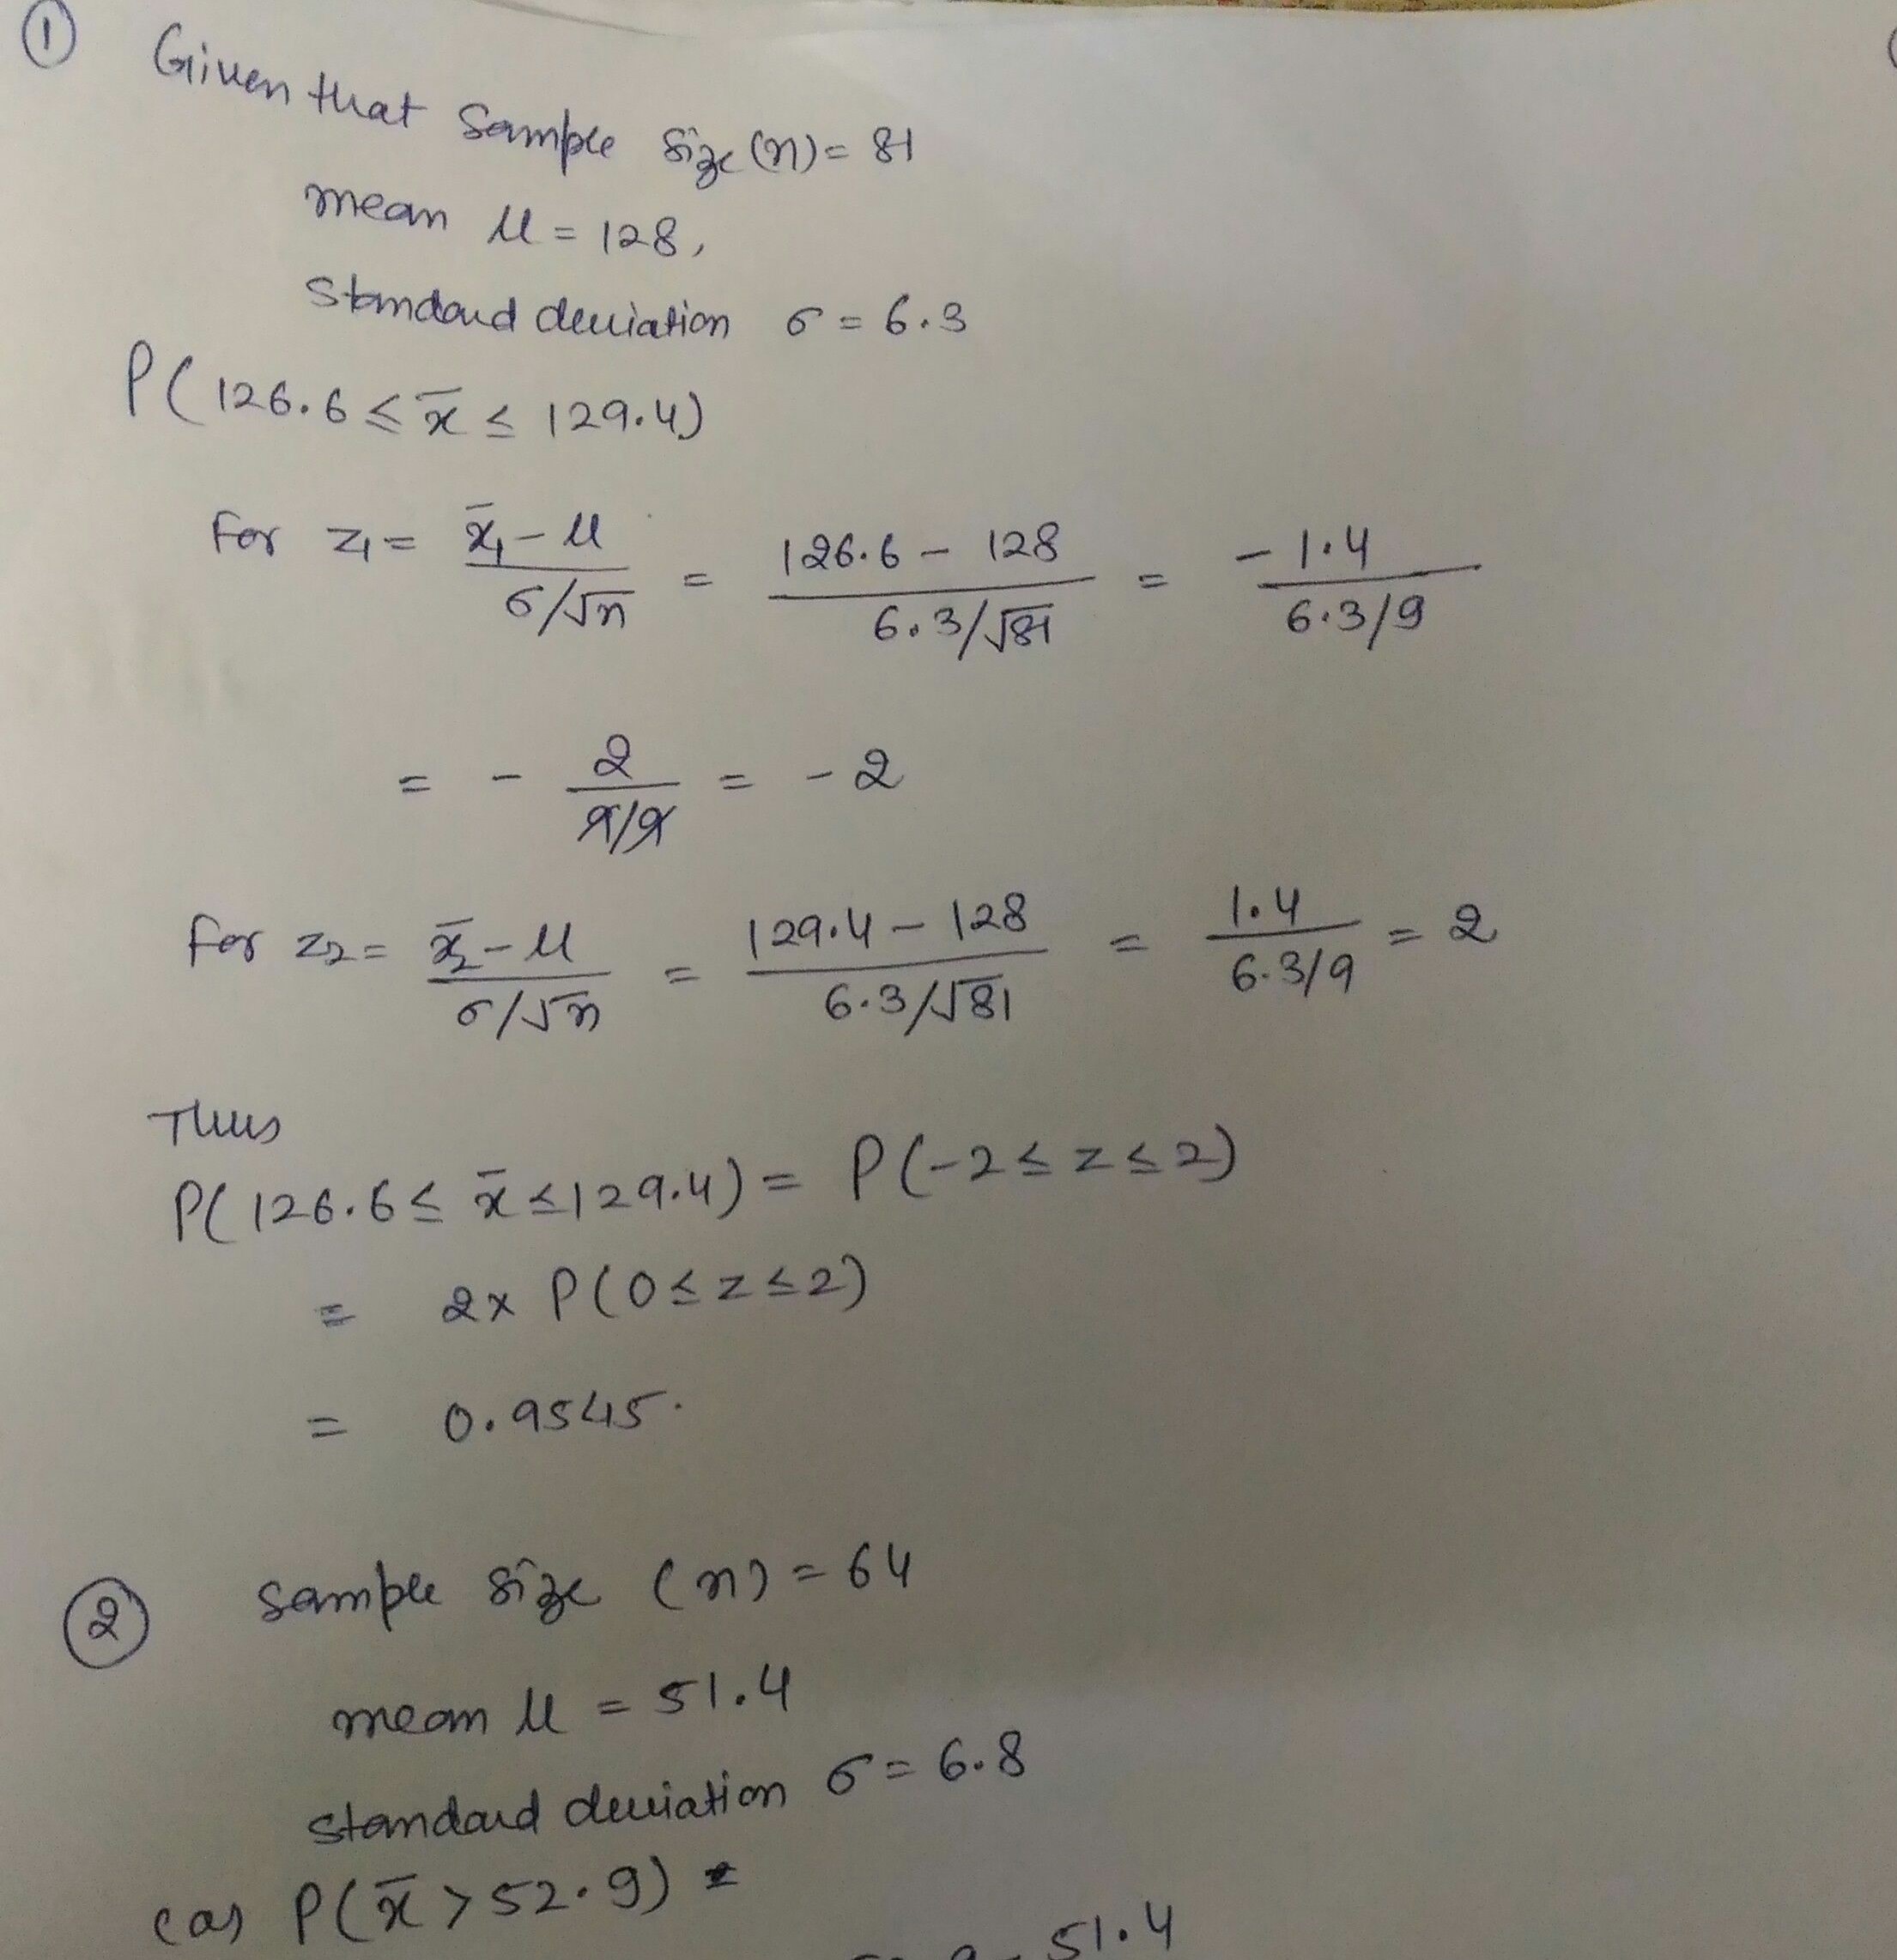 ① Given that Sample size (n) = 81
mean μ = 128,
Standard deviation σ = 6.3
P(126.6 ≤ x̄ ≤ 129.4)
For z₁ = (x̄₁ - μ)/(σ/√n) = (126.6 - 128)/(6.3/√81) = (-1.4)/(6.3/9)
= - 2/(9/9) = -2
For z₂ = (x̄₂ - μ)/(σ/√n) = (129.4 - 128)/(6.3/√81) = 1.4/(6.3/9) = 2
Thus
P(126.6 ≤ x̄ ≤ 129.4) = P(-2 ≤ z ≤ 2)
= 2x P(0 ≤ z ≤ 2)
= 0.9545.
② Sample size (n) = 64
mean μ = 51.4
standard deviation σ = 6.8
(a) P(x̄ > 52.9) =
- 51.4